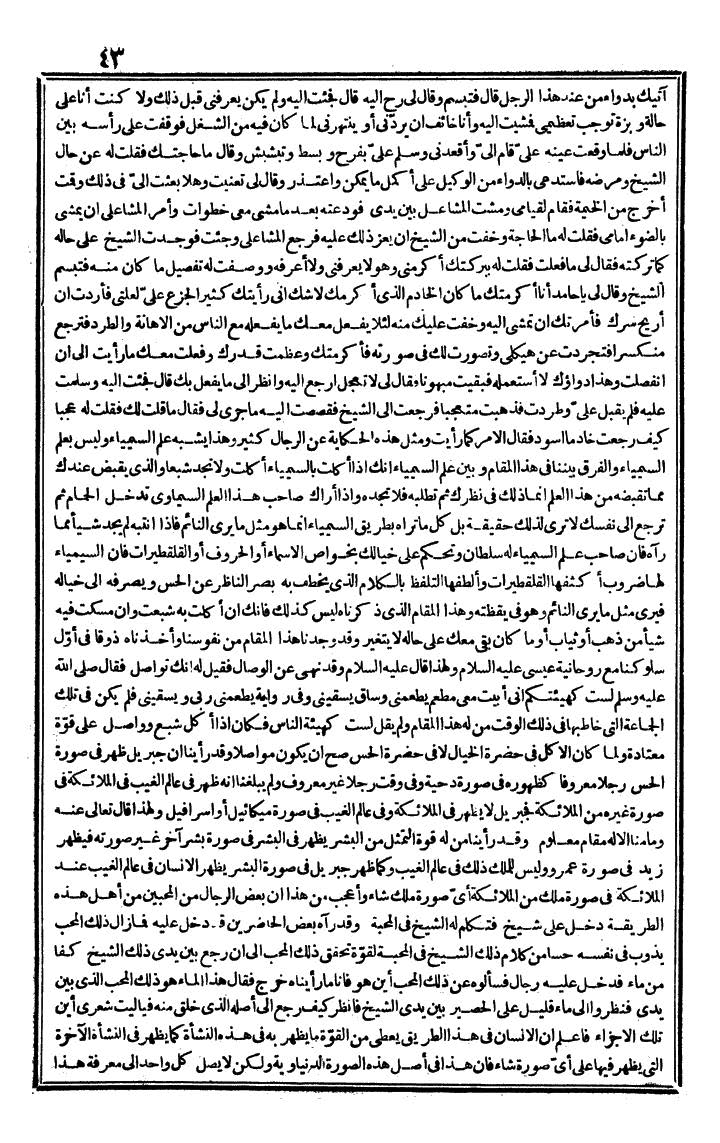 ٤٣
آتيك بدواء من عند هذا الرجل قال فتبسم وقال لى رح اليه قال فجئت اليه ولم يكن يعرفنى قبل ذلك ولا كنت أنا على
حالة وبزة توجب تعظيمى فشيت اليه وأنا خائف ان يردّنى أو ينتهرنى لما كان فيه من الشغل فوقفت على رأسه بين
الناس فلما وقعت عينه علىّ قام الىّ وأقعدنى وسلم علىّ بفرح وبسط وتبشبش وقال ما حاجتك فقلت له عن حال
الشيخ ومرضه فاستدعى بالدواء من الوكيل على أكمل ما يمكن واعتذر وقال لى تعنيت وهلا بعثت الىّ فى ذلك وقت
أخرج من الخيمة فقام لقيامى ومشت المشاعل بين يدى فودعته بعد ما مشى معى خطوات وأمر المشاعلى ان يمشى
بالضوء امامى فقلت له ما الحاجة وخفت من الشيخ ان يعز ذلك عليه فرجع المشاعلى وجئت فوجدت الشيخ على حاله
كما تركته فقال لى ما فعلت فقلت له ببركتك أكرمنى وهو لا يعرفنى ولا أعرفه ووصفت له تفصيل ما كان منه فتبسم
الشيخ وقال لى يا حامد أنا أكرمتك ما كان الخادم الذى أكرمك لا شك انى رأيتك كثير الجزع علىّ لعلتى فأردت ان
أريح سرك فأمرتك ان تمشى اليه وخفت عليك منه لئلا يفعل معك ما يفعله مع الناس من الاهانة والطرد فترجع
منكسرا فتجردت عن هيكلى وتصورت لك فى صورته فأكرمتك وعظمت قدرك وفعلت معك ما رأيت الى ان
انفصلت وهذا دواؤك لا أستعمله فبقيت مبهوتا وقال لى لا تعجل ارجع اليه وانظر الى ما يفعل بك قال فجئت اليه وسلمت
عليه فلم يقبل علىّ وطردت فذهبت متعجبا فرجعت الى الشيخ فقصصت اليه ما جرى لى فقال ما قلت لك فقلت له عجبا
كيف رجعت خادما اسود فقال الامر كما رأيت ومثل هذه الحكاية عن الرجال كثير وهذا يشبه علم السمياء وليس بعلم
السمياء والفرق بيننا فى هذا المقام وبين علم السمياء انك اذا أكلت بالسمياء أكلت ولا تجد شبعا والذى يقبض عندك
مما تقبضه من هذا العلم انما ذلك فى نظرك ثم تطلبه فلا تجده واذا أراك صاحب هذا العلم السماوى تدخل الحمام ثم
ترجع الى نفسك لا ترى لذلك حقيقة بل كل ما تراه بطريق السمياء انما هو مثل ما يرى النائم فاذا انتبه لم يجد شيأ مما
رآه فان صاحب علم السمياء له سلطان وتحكم على خيالك بخواص الاسماء أو الحروف أو القلقطيرات فان السيمياء
لها ضروب أكثفها القلقطيرات وألطفها التلفظ بالكلام الذى يخطف به بصر الناظر عن الحس ويصرفه الى خياله
فيرى مثل ما يرى النائم وهو فى يقظته وهذا المقام الذى ذكرناه ليس كذلك فانك ان أكلت به شبعت وان مسكت فيه
شيأ من ذهب أو ثياب أو ما كان بقى معك على حاله لا يتغير وقد وجدنا هذا المقام من نفوسنا وأخذناه ذوقا فى أوّل
سلوكنا مع روحانية عيسى عليه السلام ولهذا قال عليه السلام وقد نهى عن الوصال فقيل له انك تواصل فقال صلى الله
عليه وسلم لست كهيئتكم انى أبيت معى مطعم يطعمنى وساق يسقينى وفى رواية يطعمنى ربى ويسقينى فلم يكن فى تلك
الجماعة التى خاطبها فى ذلك الوقت من له هذا المقام ولم يقل لست كهيئة الناس فكان اذا أكل شبع وواصل على قوّة
معتادة ولما كان الاكل فى حضرة الخيال لا فى حضرة الحس صح ان يكون مواصلا وقد رأينا ان جبريل ظهر فى صورة
الحس رجلا معروفا كظهوره فى صورة دحية وفى وقت رجلا غير معروف ولم يبلغنا انه ظهر فى عالم الغيب فى الملائكة فى
صورة غيره من الملائكة فجبريل لا يظهر فى الملائكة وفى عالم الغيب فى صورة ميكائيل أو اسرافيل ولهذا قال تعالى عنه
وما منا الا له مقام معلوم وقد رأينا من له قوة التمثل من البشر يظهر فى البشر فى صورة بشر آخر غير صورته فيظهر
زيد فى صورة عمرو وليس للملك ذلك فى عالم الغيب وكما ظهر جبريل فى صورة البشر يظهر الانسان فى عالم الغيب عند
الملائكة فى صورة ملك من الملائكة أىّ صورة ملك شاء وأعجب من هذا ان بعض الرجال من المحبين من أهل هذه
الطريقة دخل على شيخ فتكلم له الشيخ فى المحبة وقد رآه بعض الحاضرين قد دخل عليه فما زال ذلك المحب
يذوب فى نفسه حسا من كلام ذلك الشيخ فى المحبة لقوّة تحقق ذلك المحب الى ان رجع بين يدى ذلك الشيخ كفا
من ماء فدخل عليه رجال فسألوه عن ذلك المحب أين هو فانا ما رأيناه خرج فقال هذا الماء هو ذلك المحب الذى بين
يدى فنظروا الى ماء قليل على الحصير بين يدى الشيخ فانظر كيف رجع الى أصله الذى خلق منه فياليت شعرى أين
تلك الاجزاء فاعلم ان الانسان فى هذا الطريق يعطى من القوّة ما يظهر به فى هذه النشأة كما يظهر فى النشأة الآخرة
التى يظهر فيها على أىّ صورة شاء فان هذا فى أصل هذه الصورة الدنياوية ولكن لا يصل كل واحد الى معرفة هذا